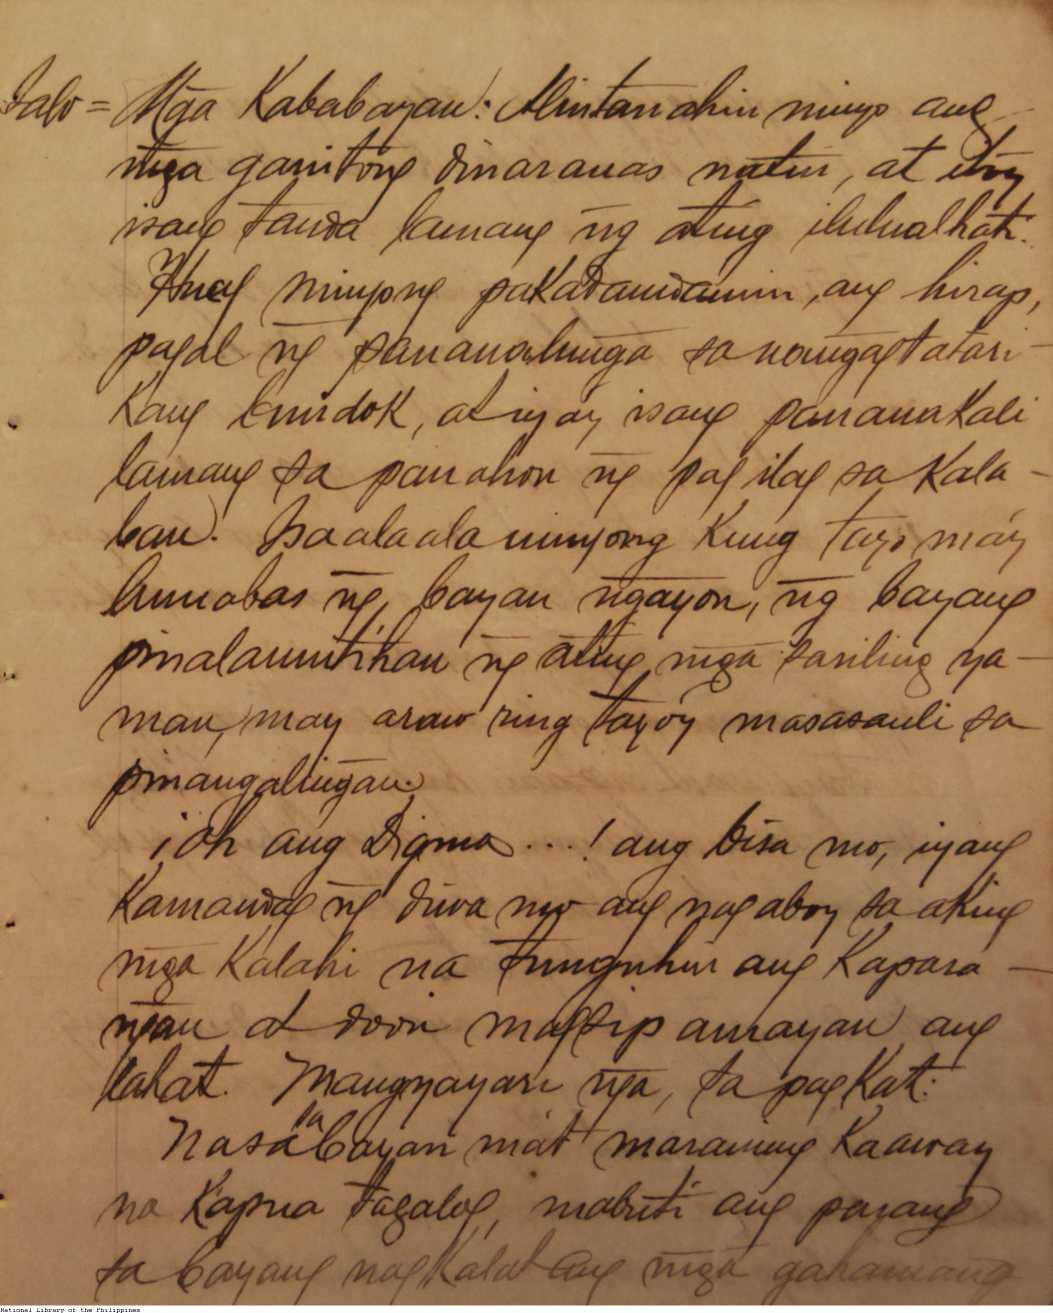 Salv = Mḡa Kababayan: Mintanahin ninyo ang
mḡa ganitong dinaranas natin, at ito'y
isang tanda lamang nḡ ating ilulualhati.
Huag ninyong pakadamdamin, ang hirap,
pagal nḡ pananahunga sa nanḡagtatari-
Kang bundok, at iya'y isang pananakali
lamang sa panahon nḡ pag ilag sa Kala-
ban. Isaalaala ninyong Kung tayo, ma'y
lumabas nḡ, bayan nḡayon, nḡ bayang
pinalamutihan nḡ ating mḡa sariling ya-
man, may araw ring tayo'y masasauli sa
pinangalinḡan.
¡Oh ang Digma...! ang bisa mo, iyang
Kamandag nḡ diwa mo ang nag aboy sa aking
mḡa Kalahi na tunguhin ang Kapara-
nḡan at doon magsipamayan ang
lahat. Mangyayari nḡa, sa pagkat:
Nasa sa bayan ma't maraming Kaaway
na Kapua tagalog, mabuti ang parang
sa bayang nagkalat ang mḡa gahamang
National Library of the Philippines